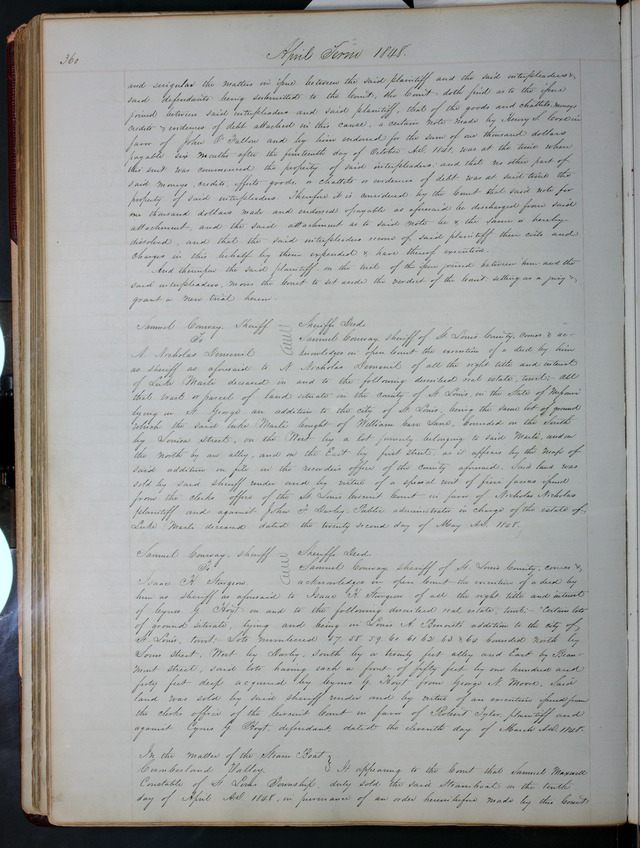 360
April Term 1848.
and singular the matters in issue between the said plaintiff and the said interpleaders &
said defendants being submitted to the Court, the Court doth find as to the issue
joined between said interpleaders and said plaintiff, that of the goods and chattels, moneys
credits & evidences of debt attached in this cause, a certain note made by Henry S. in
favor of John O Fallon and by him endorsed for the sum of one thousand dollars
payable six months after the fourteenth day of October A.D. 1841, was at the time when
this suit was commenced the property of said interpleaders and that no other part of
said moneys, credits, effects, goods, chattels or evidences of debt was at said time the
property of said interpleaders. Therefore it is considered by the Court that said note for
one thousand dollars made and endorsed & payable as aforesaid be discharged from said
attachment, and the said attachment as to said note be & the same is hereby
dissolved, and that the said interpleaders recover of said plaintiff their costs and
charges in this behalf by them expended & have thereof execution.
And thereupon the said plaintiff on the trial of the issue joined between him and the
said interpleaders, moves the Court to set aside the verdict of the Court sitting as a jury &
grant a new trial herein.
Samuel Conway, Sheriff
To
N. Nicholas Demenil
Sheriffs Deed.
Samuel Conway sheriff of St Louis County, comes & ac-
knowledges in open Court the execution of a deed by him
as sheriff as aforesaid to N Nicholas Demenil of all the right title and interest
of Luke Marli deceased in and to the following described real estate, towit; all
that tract or parcel of land situate in the County of St Louis, in the State of Missouri
lying in St George an addition to the city of St Louis, being the same lot of ground
which the said Luke Marli bought of William Carr Lane, bounded on the South
by Louisa Street, on the West by a lot formerly belonging to said Marli, and on
the north by an alley, and on the East by first street, as it appears by the map of
said addition on file in the recorders office of the county aforesaid. Said land was
sold by said sheriff under and by virtue of a special writ of fieri facias issued
from the clerks office of the St Louis Circuit Court in favor of Nicholas Nicholas
plaintiff and against John F. Darby, Public administrator in charge of the estate of
Luke Marli deceased dated the twenty second day of May A.D. 1848.
Samuel Conway, sheriff
To
Isaac H. Sturgeon,
Sheriffs Deed.
Samuel Conway sheriff of St Louis County, comes &
acknowledges in open Court the execution of a deed by
him as sheriff as aforesaid to Isaac H Sturgeon of all the right title and interest
of Cyrus G. Hoyt in and to the following described real estate, towit;- Certain lots
of ground situate, lying and being in Louis A Benoits addition to the city of
St. Louis, towit. Lots numbered 57. 58. 59. 60 61 62 63 & 64 bounded North by
street. West by Darby, South by a twenty feet alley and East by
street, said lots having each a front of fifty feet by one hundred and
forty feet deep acquired by Cyrus G Hoyt from George N. Moore. Said
land was sold by said sheriff under and by virtue of an execution issued from
the clerks office of the Circuit Court in favor of Robert Tyler, plaintiff and
against Cyrus G. Hoyt, defendant, dated the eleventh day of March A.D. 1848.
In the matter of the Steam Boat
Cumberland Valley
It appearing to the Court that Samuel Maxwell
Constable of St Louis Township duly sold the said Steamboat on the tenth
day of April A.D. 1848, in pursuance of an order heretofore made by this Court